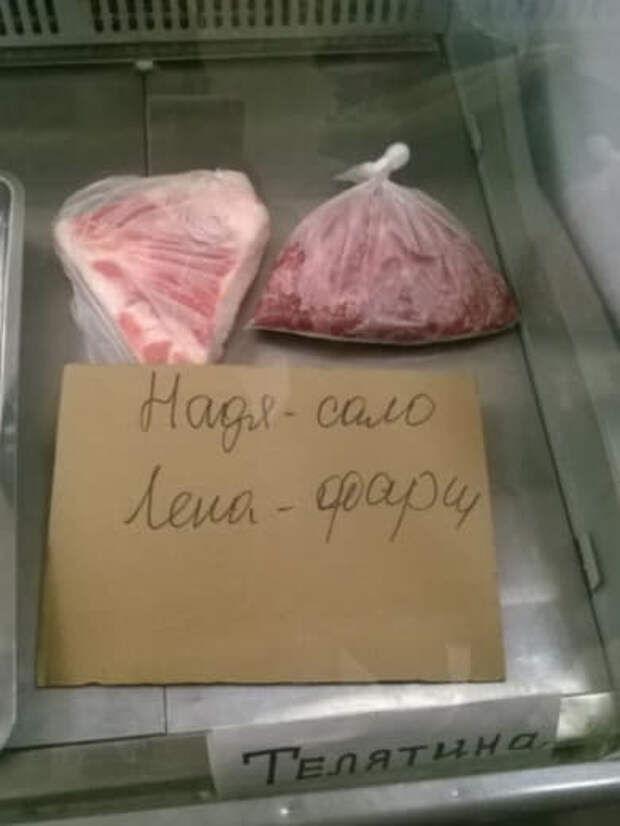 Надя - сало
Лена - фарш
Телятина